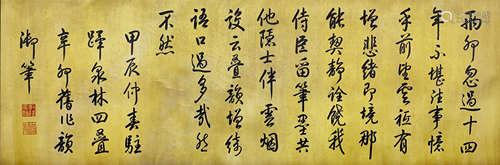 兩卯忽過十四
年不堪往事憶
乎前望雲祗有
增悲緒即境那
能契靜詮饒我
侍臣留筆墨共
他隱士伴雲煙
設云疊韻增綺
語口過多哉然
不然
甲辰仲春駐
蹕泉林四疊
辛卯舊作韻
御筆